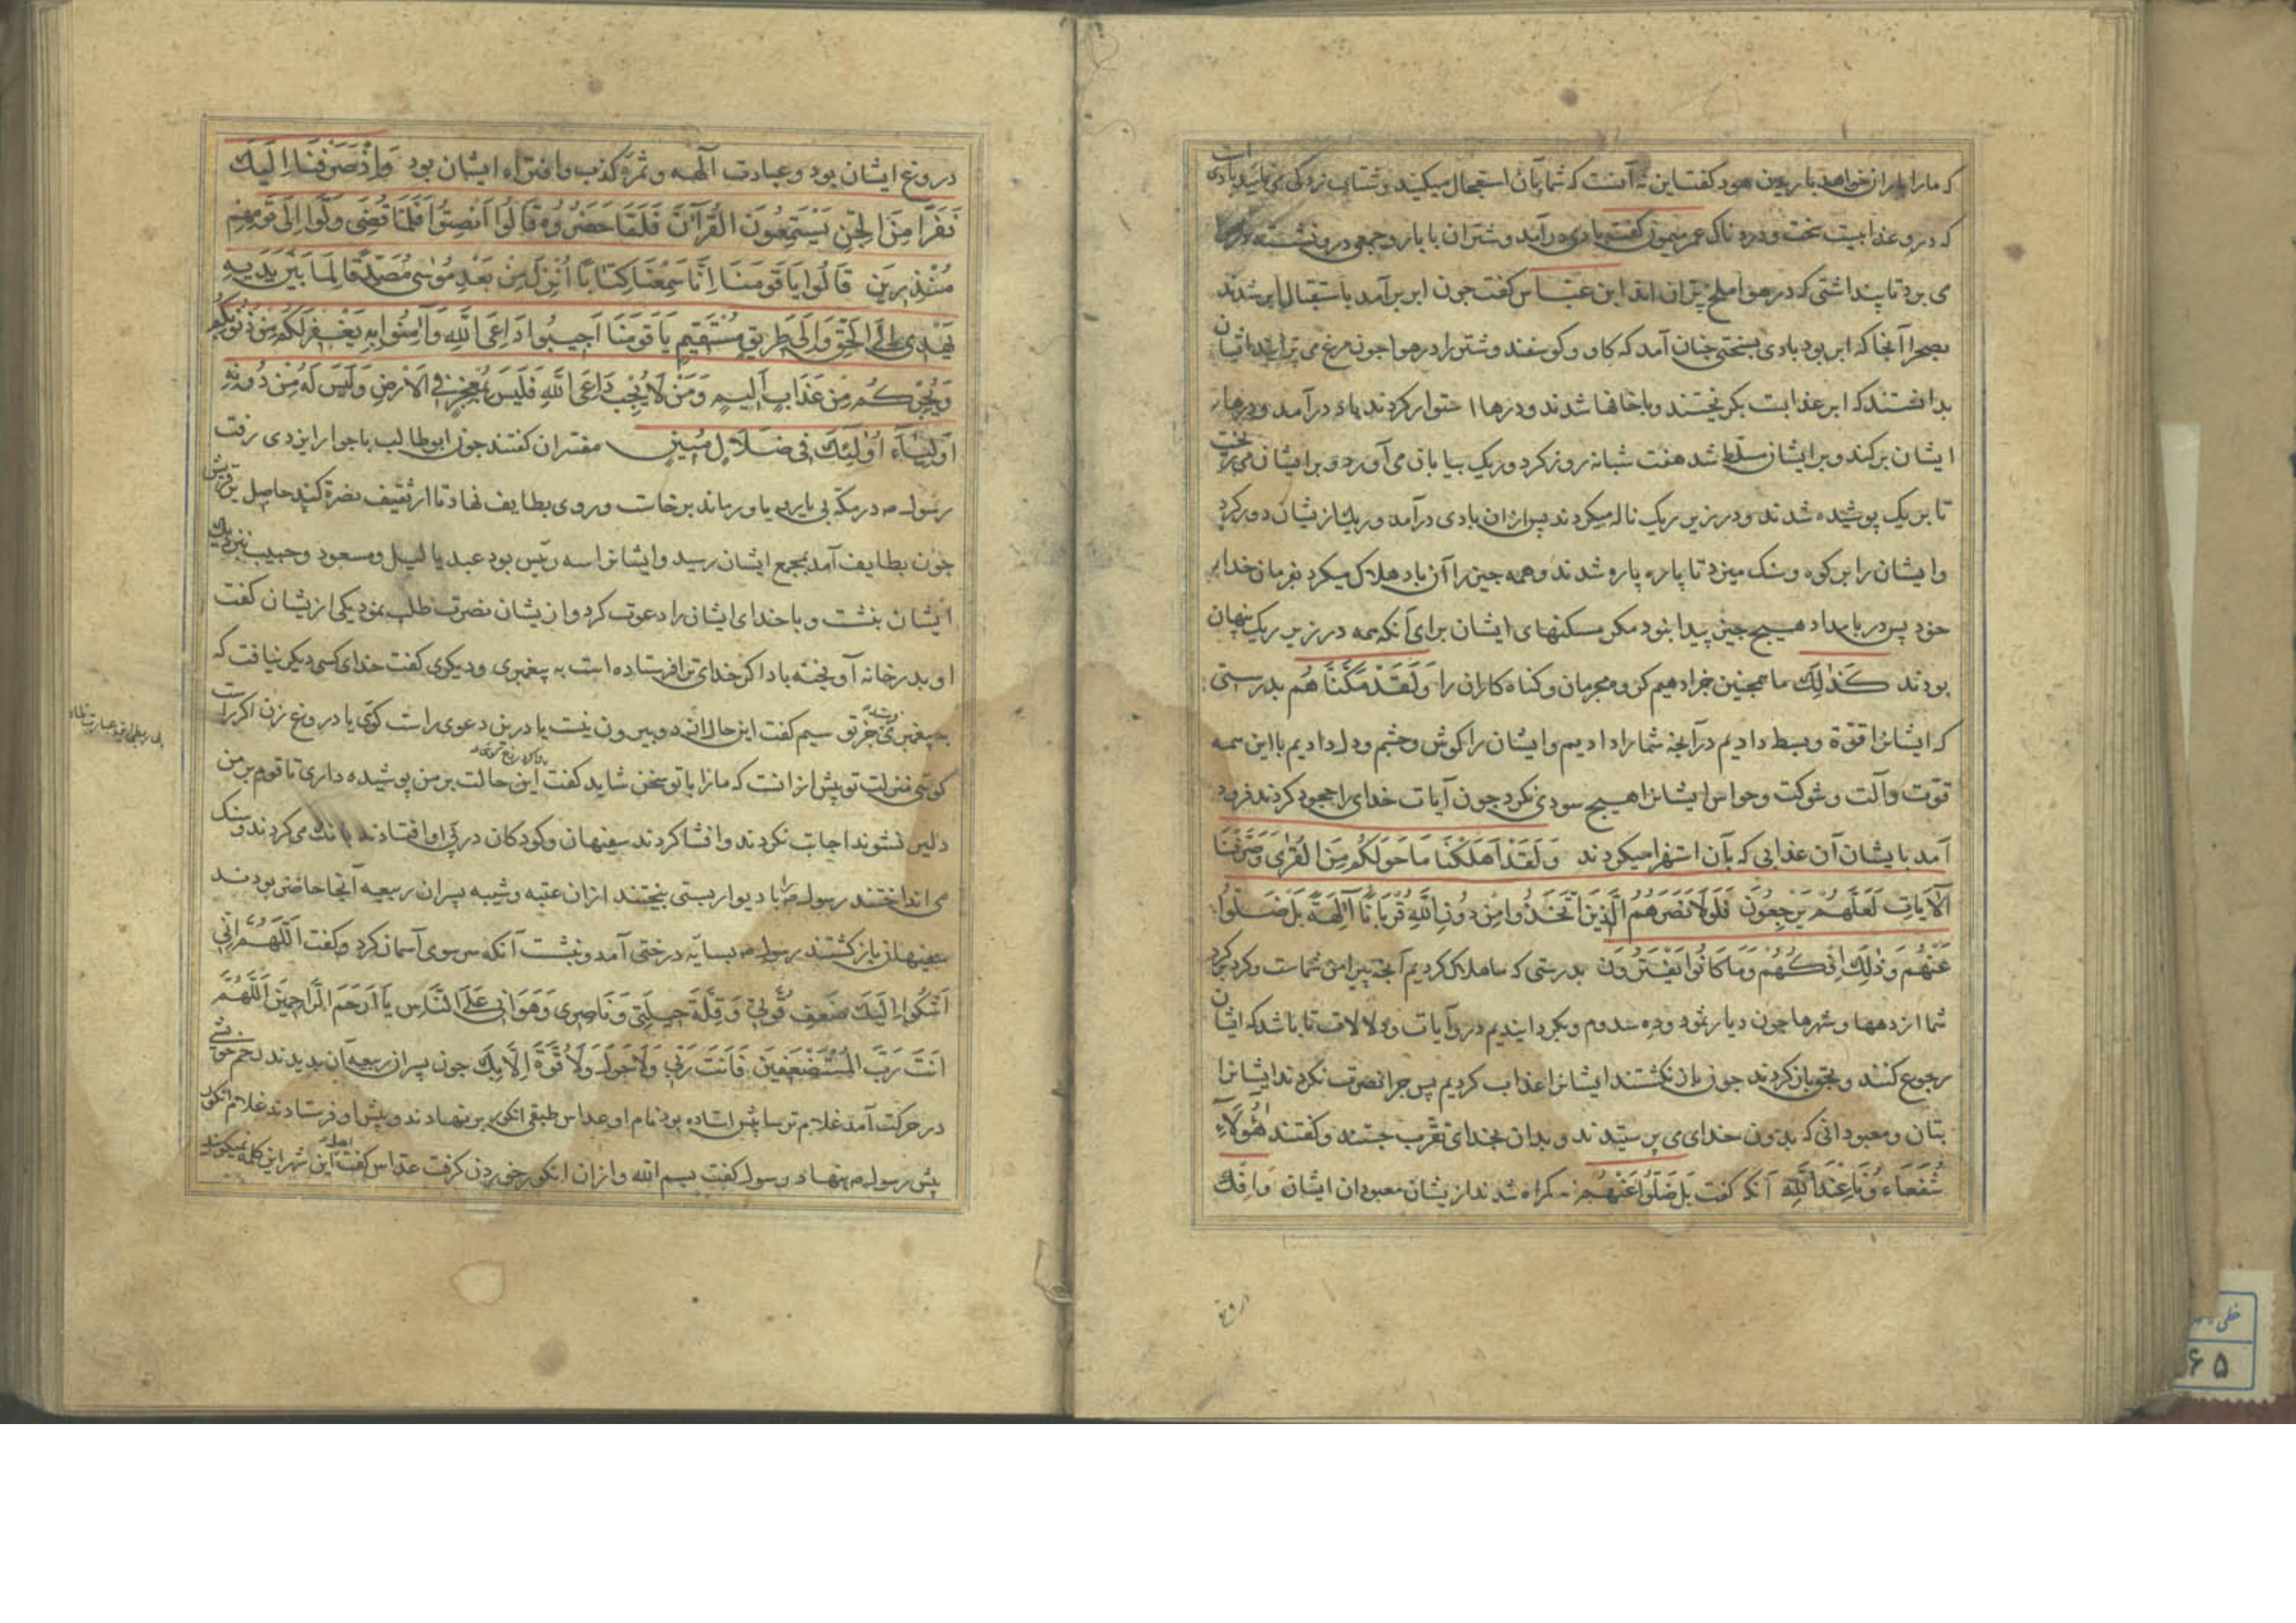 که ما را باران خواهد باریدن هود کفت این نه آنست که شما بآن استعجال میکنید و شتاب زدکی می نمایید بادی است
که درو عذابیست سخت و دردناک عمر میمون کفت بادی درآمد و شتران با بار و جمعی درو نشسته
می بود تا پنداشتی که در هوا ملخ پران اند ابن عباس کفت جون ابر برآمد باستقبال ابر شدند
بصحرا آنجا که ابر بود بادی بسختی جنان آمد که کاو و کوسفند و شتر را در هوا جون مرغ می پرانید ایشان
بدانستند که ابر عذابست بکریختند و باخانها شدند و درها استوار کردند باد درآمد و درهاء
ایشان برکند و بر ایشان مسلط شد هفت شبانه روز کرد و ریک بیابان می آورد و بر ایشان می ریخت
تا بریک پوشیده شدند و در زیر ریک ناله میکردند پس ازان بادی درآمد و ریک ازیشان دور کرد
و ایشان را بر کوه و سنک میزد تا پاره پاره شدند و همه جیز را آن باد هلاک میکرد بفرمان خدای
خود پس در بامداد هیچ جیز پیدا نبود مکر مسکنهای ایشان برای آنکه همه در زیر ریک پنهان
بودند كَذٰلِكَ ما همجنین جزا دهیم کروه مجرمان و کناه کاران را وَلَقَدْ مَكَّنَّا هُم بدرستی
که ایشانرا قوّة و بسط دادیم در آنجه شما را دادیم و ایشان را کوش و جشم و دل دادیم با این همه
قوّت و آلت و شوکت و حواس ایشانرا هیچ سودی نکرد جون آیات خدای را جحود کردند فرود
آمد بایشان آن عذابی که بآن استهزا میکردند وَلَقَدْ اَهْلَكْنَا مَا حَوْلَكُم مِّنَ الْقُرٰى وَصَرَّفْنَا
الْآيَاتِ لَعَلَّهُمْ يَرْجِعُونَ فَلَوْلَا نَصَرَهُمُ الَّذِينَ اتَّخَذُوا مِن دُونِ اللّٰهِ قُرْبَانًا آلِهَةً بَلْ ضَلُّوا
عَنْهُمْ وَذٰلِكَ اِفْكُهُمْ وَمَا كَانُوا يَفْتَرُونَ بدرستی که ما هلاک کردیم آنجه پیرامن شماست و کرد بر کرد
شما از دهها و شهرها جون دیار ثمود و ده سدوم و بکردانیدیم درو آیات و دلالات تا باشد که ایشان
رجوع کنند و بحق باز کردند جون باز نکشتند ایشانرا عذاب کردیم پس جرا نصرت نکردند ایشانرا
بتان و معبودانی که بدون خدای می پرستیدند و بدان بخدای تقرب جستند و کفتند هٰؤُلَاءِ
شُفَعَاءُ وُنَا عِنْدَ اللّٰهِ آنکه کفت بَلْ ضَلُّوا عَنْهُمْ نه کمراه شدند ازیشان معبودان ایشان وَاِفْك
دروغ
دروغ ایشان بود و عبادت آلهه و ثمره کذب و افتراء ایشان بود وَاِذْ صَرَفْنَا اِلَيْكَ
نَفَرًا مِنَ الْجِنِّ يَسْتَمِعُونَ الْقُرْآنَ فَلَمَّا حَضَرُوهُ قَالُوا اَنْصِتُوا فَلَمَّا قُضِىَ وَلَّوْا اِلٰى قَوْمِهِمْ
مُنْذِرِينَ قَالُوا يَا قَوْمَنَا اِنَّا سَمِعْنَا كِتَابًا اُنْزِلَ مِنْ بَعْدِ مُوسٰى مُصَدِّقًا لِمَا بَيْنَ يَدَيْهِ
يَهْدِى اِلَى الْحَقِّ وَاِلٰى طَرِيقٍ مُسْتَقِيمٍ يَا قَوْمَنَا اَجِيبُوا دَاعِىَ اللّٰهِ وَآمِنُوا بِهِ يَغْفِرْ لَكُمْ مِنْ ذُنُوبِكُمْ
وَيُجِرْكُمْ مِنْ عَذَابٍ اَلِيمٍ وَمَنْ لَا يُجِبْ دَاعِىَ اللّٰهِ فَلَيْسَ بِمُعْجِزٍ فِى الْاَرْضِ وَلَيْسَ لَهُ مِنْ دُونِهِ
اَوْلِيَاءُ اُولٰئِكَ فِى ضَلَالٍ مُبِينٍ مفسران کفتند جون ابوطالب باجوار ایزدی رفت
رسول ص در مکه بی یار و یاور ماند برخاست و روی بطایف نهاد تا از ثقیف نصرة کند حاصل بر قریش
جون بطایف آمد بمجمع ایشان رسید و ایشانرا سه رئیس بود عبد یا لیل و مسعود و حبیب بنزدیک
ایشان بنشست و با خدای ایشان را دعوت کرد و ازیشان نصرت طلب نمود یکی ازیشان کفت
او بدر خانه آویخته باد اکر خدای ترا فرستاده است به پیغمبری و دیکری کفت خدای کسی دیکر نیافت که
به پیغمبری فرستد جز تو سیم کفت این حال از دو بیرون نیست یا درین دعوی راست کوئی یا دروغ زن اکر راست
کوئی منزلت تو بیش از انست که ما را با تو سخن شاید کفت این حالت بر من پوشیده داری تا قوم بر من
دلیر نشوند اجابت نکردند و افشا کردند سفیهان و کودکان در پی او افتادند بانک می کردند و سنک
می انداختند رسول ص را با دیوار بستی بیختند ازان عتبه و شیبه پسران ربیعه آنجا حاضر بودند
سفیهان باز کشتند رسول ص بسایه درختی آمد و بنشست آنکه سر سوی آسمان کرد و کفت اَللّٰهُمَّ اِنِّى
اَشْكُو اِلَيْكَ ضَعْفَ قُوَّتِى وَقِلَّةَ حِيلَتِى وَنَاصِرِى وَهَوَانِى عَلَى النَّاسِ يَا اَرْحَمَ الرَّاحِمِينَ اَللّٰهُمَّ
اَنْتَ رَبُّ الْمُسْتَضْعَفِينَ فَاَنْتَ رَبِّى وَلَا حَوْلَ وَلَا قُوَّةَ اِلَّا بِكَ جون پسران ربیعه آن بدیدند رحم خویشی
در حرکت آمد غلام ترسا پیش استاده بود نام او عداس طبقی انکور بر نهادند و پیش او فرستادند غلام انکور
پیش رسول ص بنهاد رسول کفت بسم الله و ازان انکور خوردن کرفت عداس کفت اهل این شهر این کلمه نمیکویند
خطی
۶۵